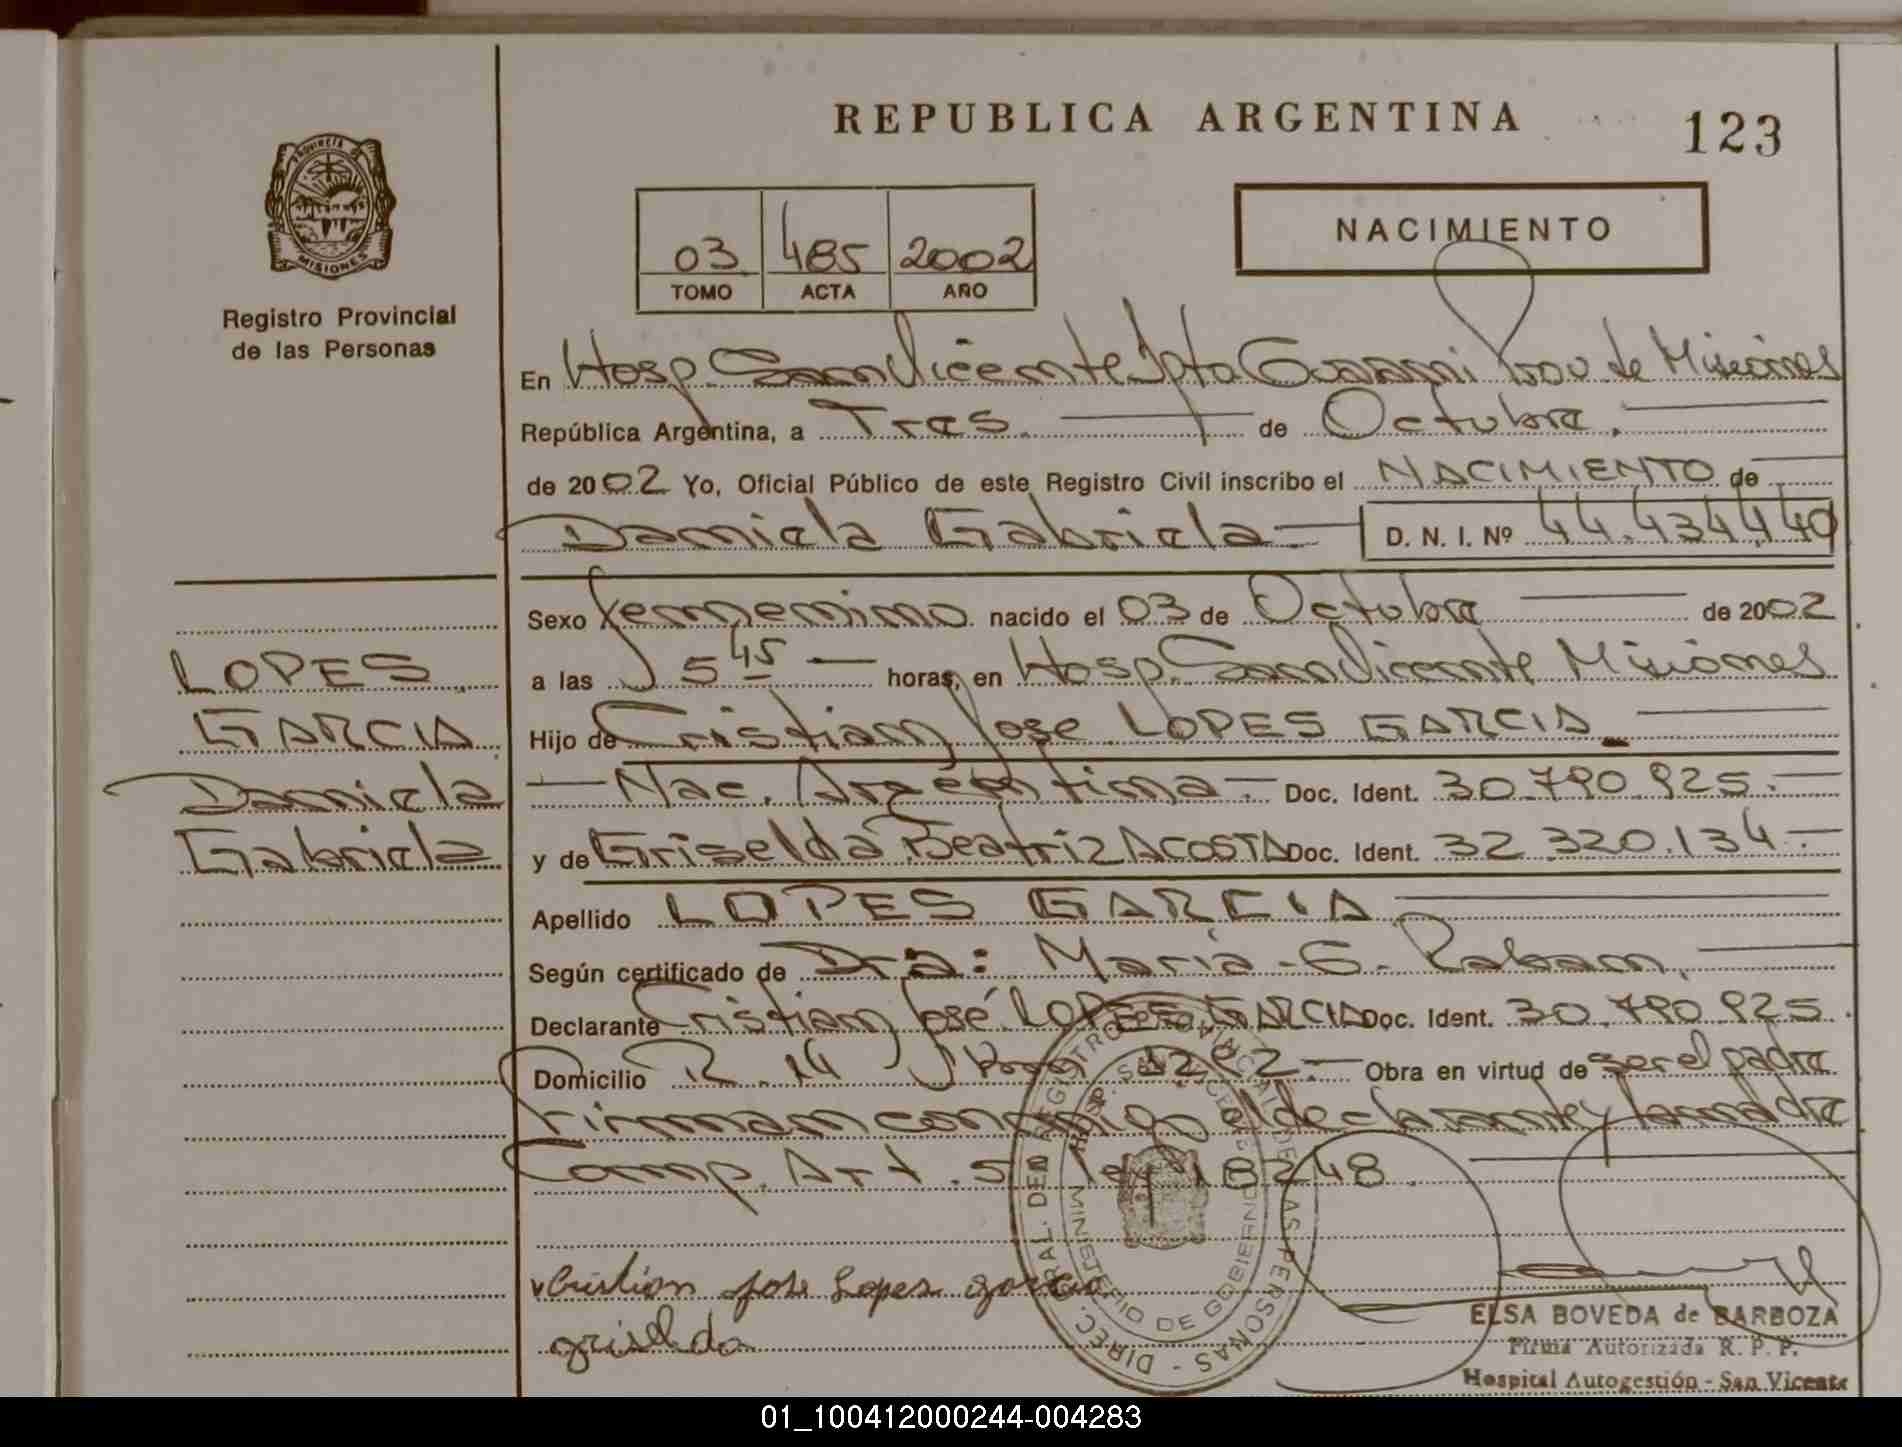 REPUBLICA ARGENTINA
123
PROVINCIA DE MISIONES
Registro Provincial
de las Personas
03 485 2002
TOMO ACTA AÑO
NACIMIENTO
En Hosp. San Vicente Dpto Guarani Prov de Misiones
República Argentina, a Tres de Octubre.
de 2002 Yo, Oficial Público de este Registro Civil inscribo el NACIMIENTO de
Daniela Gabriela D. N. I. Nº 44.434.440
Sexo femenino nacido el 03 de Octubre de 2002
a las 5 45 horas, en Hosp. San Vicente Misiones
Hijo de Cristian Jose LOPES GARCIA
Nac. Argentina Doc. Ident. 30.790.925.
y de Griselda Beatriz ACOSTA Doc. Ident. 32.320.134
Apellido LOPES GARCIA
Según certificado de Dra: Maria G.
Declarante Cristian José LOPES GARCIA Doc. Ident. 30.790.925.
Domicilio R. 14 1282 Obra en virtud de ser el padre
Firman conmigo el declarante y la madre
Comp. Art. 5 ley 18248.
LOPES
GARCIA
Daniela
Gabriela
Cristian Jose Lopes garcia
griselda
DIREC. GRAL. DEL REGISTRO PROVINCIAL DE LAS PERSONAS
HOSP. SAN VICENTE
MINISTERIO DE GOBIERNO
ELSA BOVEDA de BARBOZA
Firma Autorizada R. P. P.
Hospital Autogestión - San Vicente
01_100412000244-004283